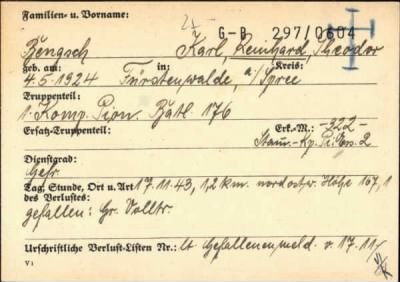 Familien- u. Vorname:
G-B 297/0604
Bengsch Karl, Reinhard, Theodor
geb. am: in: Kreis:
4.5.1924 Fürstenwalde, a/Spree
Truppenteil:
1. Komp. Pion. Batl. 176
Ersatz-Truppenteil: Erk.-M.: -322-
Stam.-Kp. Pi. Ers. 2
Dienstgrad:
Gefr.
Tag, Stunde, Ort u. Art 17.11.43, 1,2 km. nordostw. Höhe 167,1
des Verlustes:
gefallen: Gr. Volltr.
Urschriftliche Verlust-Listen Nr.: lt. Gefallenenmeld. v. 17.11.
V 1